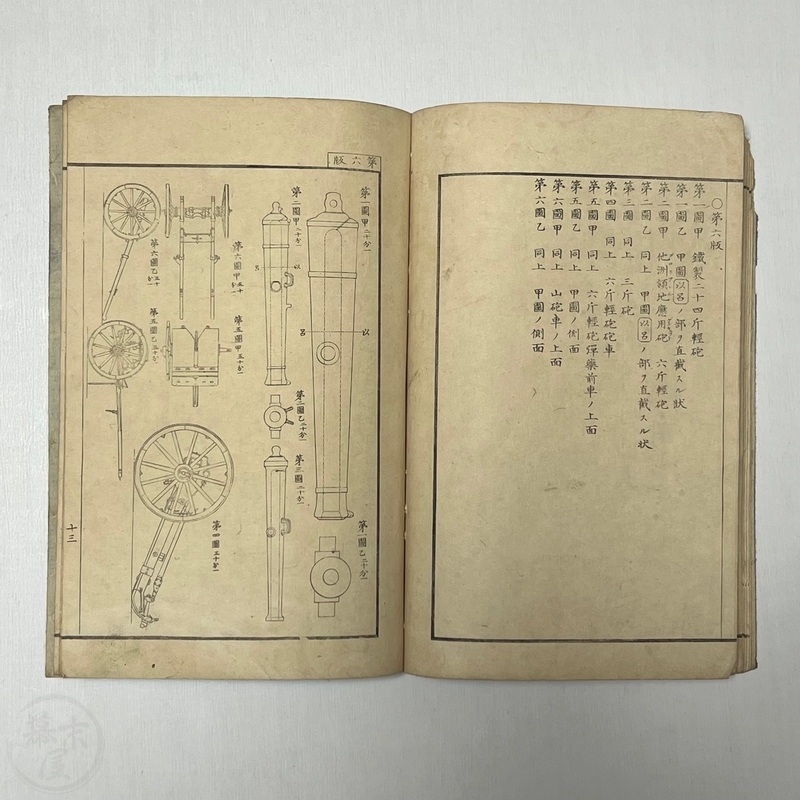 ○第六版
第一圖甲 鐵製二十四斤輕砲
第一圖乙 甲圖以呂ノ部ヲ直截スル状
第二圖甲 他洲領地應用砲 六斤輕砲
第二圖乙 同上 甲圖以呂ノ部ヲ直截スル状
第三圖 同上 三斤砲
第四圖 同上 六斤輕砲砲車
第五圖甲 同上 六斤輕砲彈藥前車ノ上面
第五圖乙 同上 甲圖ノ側面
第六圖甲 同上 山砲車ノ上面
第六圖乙 同上 甲圖ノ側面
第六版
第一圖甲二十分一
以
呂
第一圖乙二十分一
第二圖甲二十分一
以
呂
第二圖乙二十分一
第三圖二十分一
第六圖甲五十分一
第五圖甲五十分一
第四圖五十分一
第六圖乙五十分一
第五圖乙五十分一
十三
幕末屋